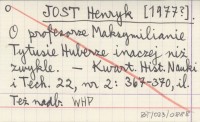 JOST Henryk [1977?].
O profesorze Maksymilianie
Tytusie Huberze inaczej niż
zwykle. — Kwart. Hist. Nauki
i Tech. 22, nr 2: 367-370, il.
Też nadb. WHP